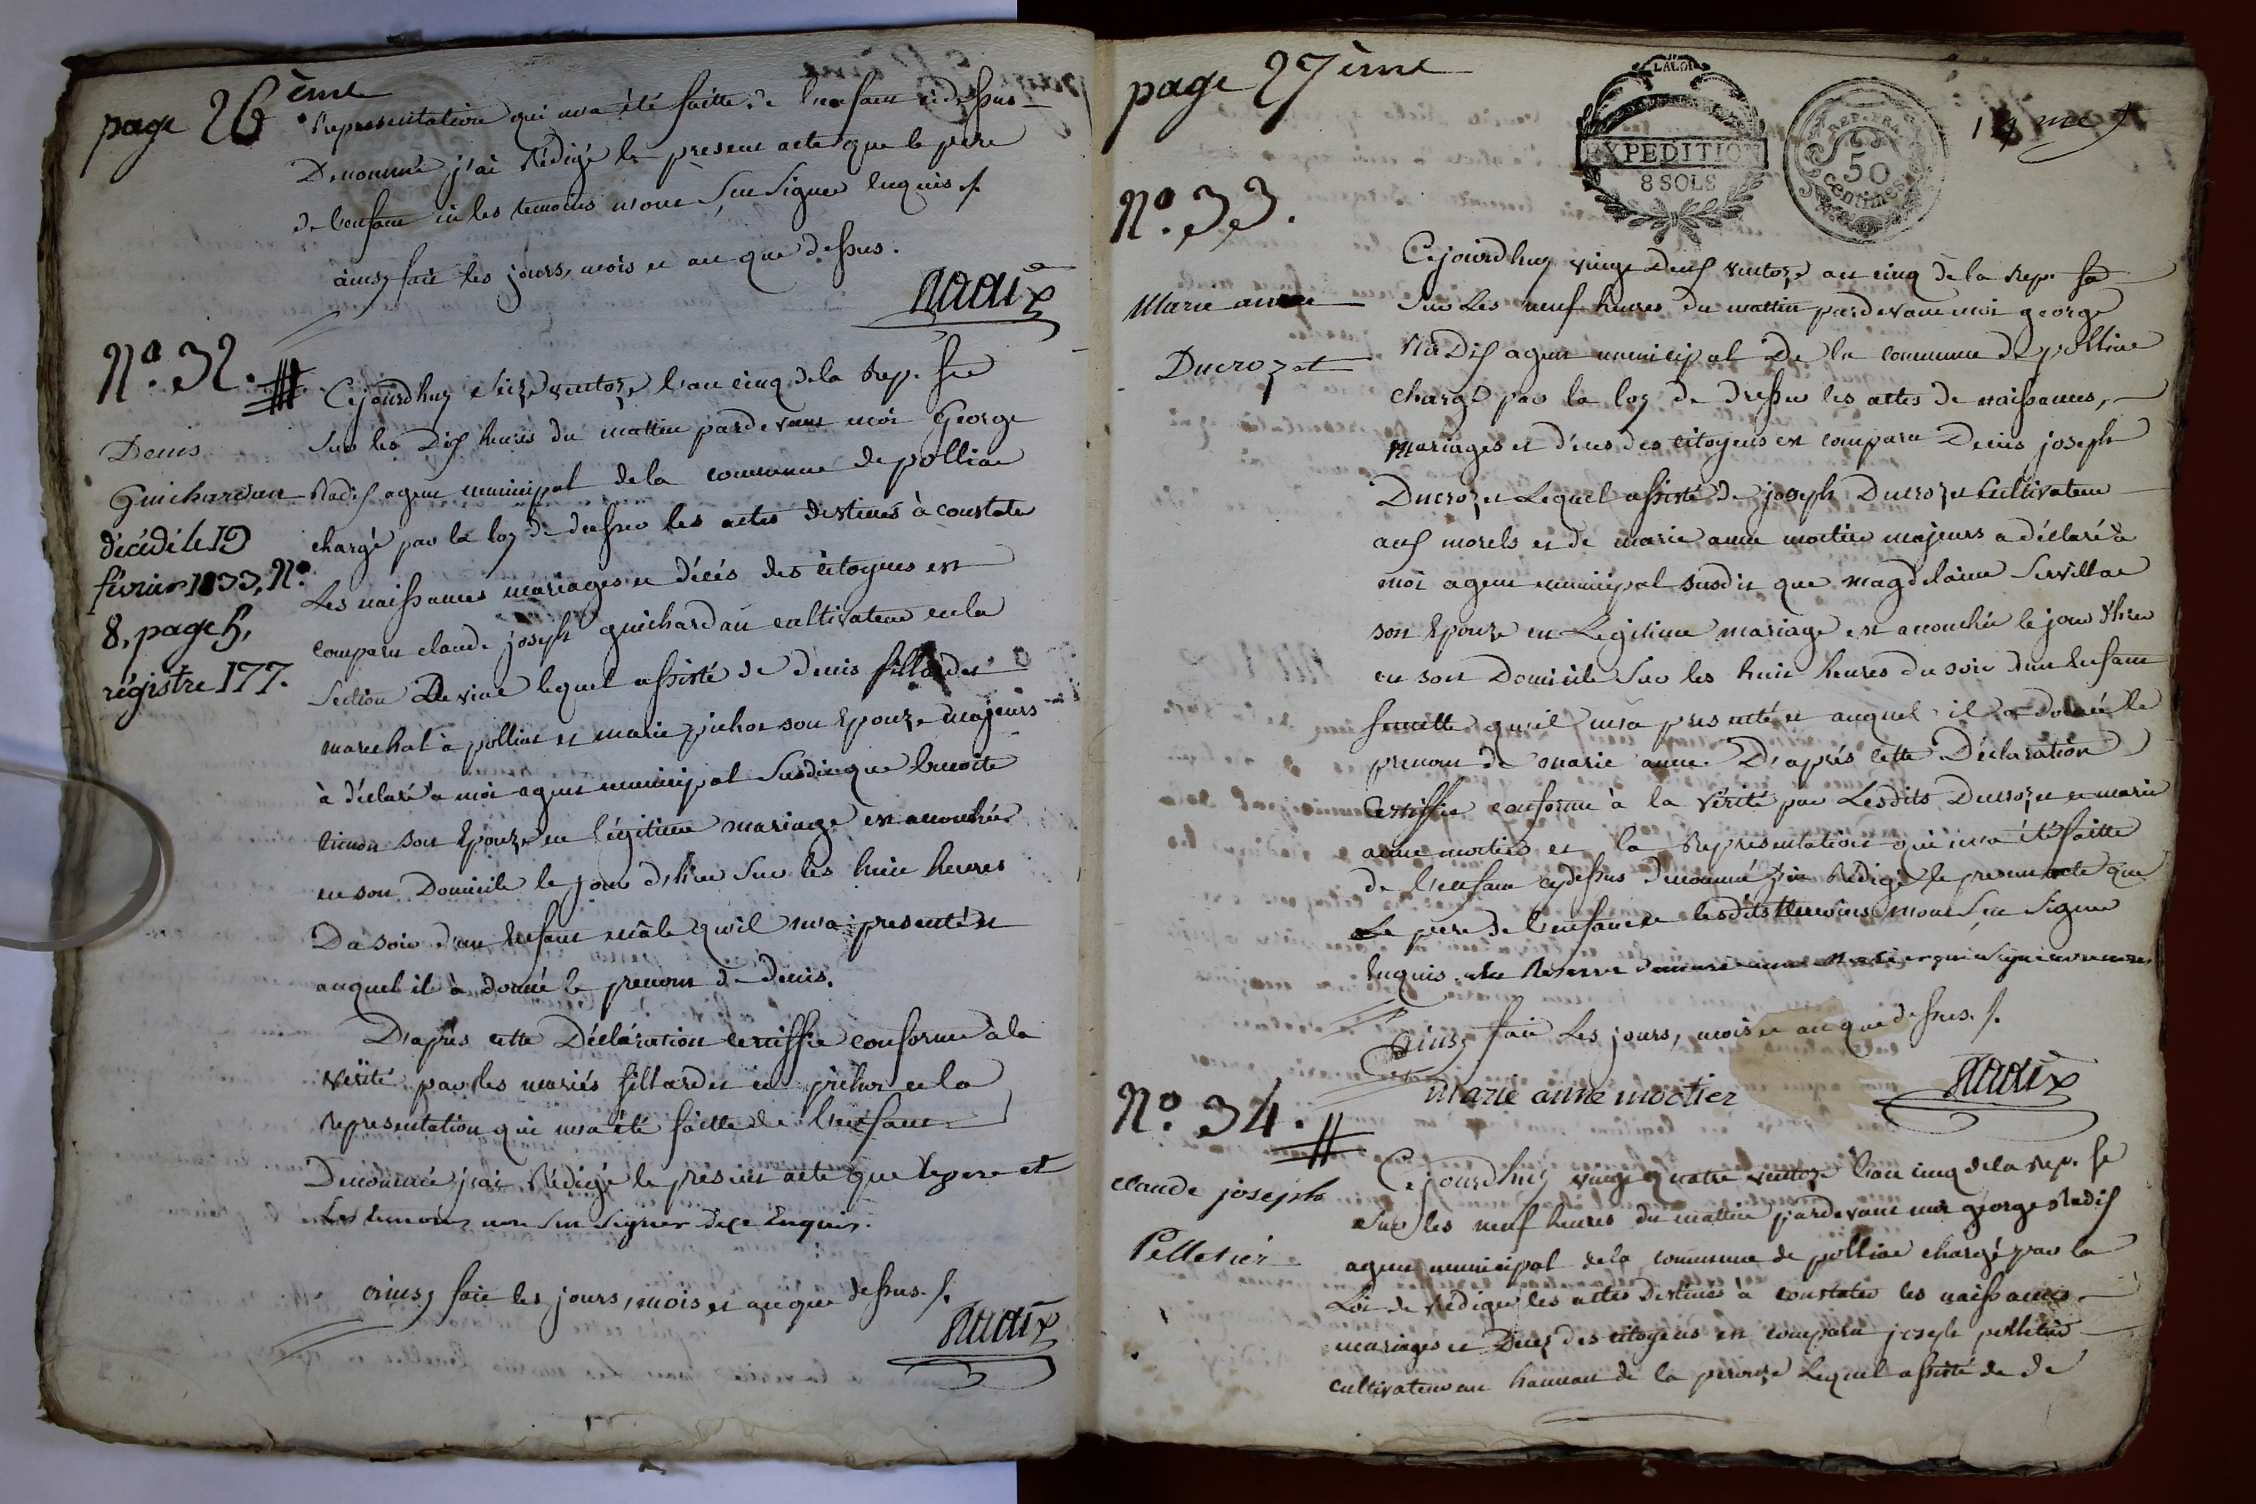 page 26 ème
Representation qui m'a été faitte de l'enfant ci dessus
Denommé j'ai Rédigé le present acte que le pere
de l'enfant ni les temoins n'ont Sçu Signer Enquis ./.
ainsy fait les jours, mois et an que dessus.
Radix
N.º 32.
Denis
Guichardan
décédé le 19
février 1833, N.º
8, page 5,
régistre 177.
Cejourdhuy seize ventoze l'an cinq de la Rep. fre
Sur les Dix heures du mattin pardevant moi George
Radix agent municipal dela commune de polliat
chargé par la loy de dresser les actes destinés à constater
Les naissances mariages et décés des citoyens est
comparu claude joseph guichardan cultivateur en la
Section De viac lequel assisté de denis fillardet
marechal à polliat et marie pichot son Epouze majeurs
à déclaré à moi agent municipal Susdit que benoite
son Epouze en légitime mariage est accouchée
en son Domicile le jour d'hier Sur les huit heures
Du soir d'un Enfant mâle qu'il m'a presenté et
auquel il à donné le prenom de denis.
D'aprés cette Déclaration certiffié conforme à la
vérité par les mariés fillardet et pichot et la
representation qui m'a été faitte de l'enfant
Denommé j'ai Rédigé le present acte que le pere et
Les temoins n'ont Sçu Signer de ce Enquis.
ainsy fait les jours, mois et an que dessus ./.
Radix
page 27 ème
LA LOI
EXPEDITION
8 SOLS
REP. FRA.
50
centimes
N.º 33.
Marie anne
Ducrozet
Cejourdhuy vingt Deux ventoze an cinq de la Rep. fse
Sur Les neuf heures du mattin pardevant moi george
Radix agent municipal De la commune de polliat
chargé par la loy de dresser les actes de naissances,
mariages et décés des citoyens est comparu Denis joseph
Ducrozet Lequel assisté de joseph Ducrozet Cultivateur
aux morels et de marie anne mortier majeurs a déclaré à
moi agent municipal susdit que magdelaine Servillat
son Epouze en Legitime mariage est accouchée le jour d'hier
en son Domicile Sur les huit heures du soir d'un Enfant
femelle qu'il m'a presenté et auquel il a donné le
prenom de marie anne. D'aprés cette Déclaration
Certiffié conforme à la vérité par Lesdits Ducrozet et marie
anne mortier et la Representation qui m'a été faitte
de l'enfant cy dessus denommé j'ai Rédigé le present acte que
Le pere de l'enfant et lesdits temoins n'ont Sçu Signer
Enquis a la Reserve de marie anne mortier qui a signé avec nous
ainsy fait Les jours, mois et an que dessus ./.
marie anne mortier
Radix
N.º 34.
claude joseph
Pelletier
Cejourdhuy vingt quatre ventoze l'an cinq dela Rep. fe
Sur les neuf heures du mattin pardevant moi george Radix
agent municipal dela commune de polliat chargé par la
Loi de Rédiger les actes destinés à constater les naissances
mariages et Décés des citoyens est comparu joseph pelletier
cultivateur au hameau de la perouze Lequel assisté de de